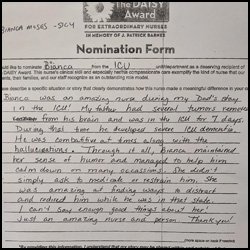 BIANCA MOSES - SICU
The DAISY
Award
FOR EXTRAORDINARY NURSES
IN MEMORY OF J. PATRICK BARNES
Nomination Form
I want to nominate Bianca from the ICU unit/department as a deserving recipient of
DAISY Award. This nurse's clinical skill and especially her/his compassionate care exemplify the kind of nurse that our
patients, their families, and our staff recognize as an outstanding role model.
describe a specific situation or story that clearly demonstrates how this nurse made a meaningful difference in your
Bianca was an amazing nurse during my Dad's stay
in the ICU. My father had several tumors removed
from his brain and was in the ICU for 7 days.
During that time he developed severe ICU dementia.
He was combative at times along with the
hallucinations. Through it all, Bianca maintained
her sense of humor and managed to help him
calm down on many occasions. She didn't
simply ask to medicate or restrain him. She
was amazing at finding ways to distract
and redirect him while he was in that state.
I can't say enough good things about her!
Just an amazing nurse and person. Thank you!